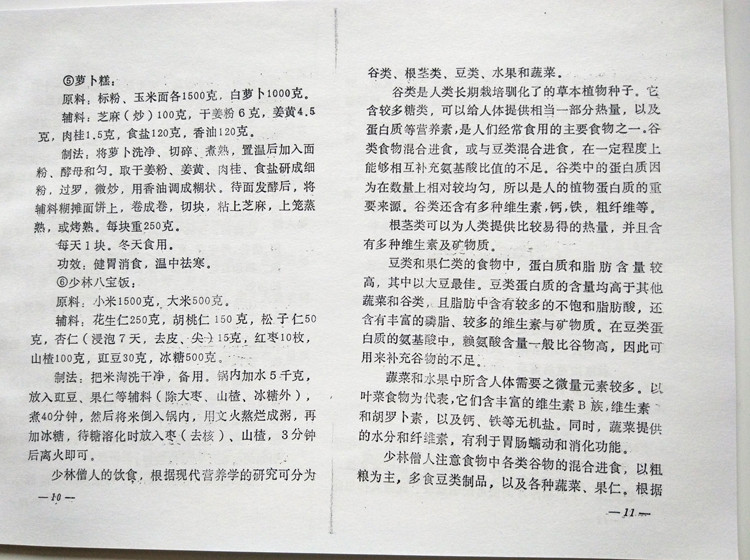 ⑤萝卜糕：
原料：标粉、玉米面各1500克，白萝卜1000克。
辅料：芝麻（炒）100克，干姜粉6克，姜黄4.5
克，肉桂1.5克，食盐120克，香油120克。
制法：将萝卜洗净、切碎、煮熟，置温后加入面
粉、酵母和匀。取干姜粉、姜黄、肉桂、食盐研成细
粉，过罗，微炒，用香油调成糊状。待面发酵后，将
辅料糊摊面饼上，卷成卷，切块，粘上芝麻，上笼蒸
熟，或烤熟。每块重250克。
每天1块。冬天食用。
功效：健胃消食，温中祛寒。
⑥少林八宝饭：
原料：小米1500克，大米500克。
辅料：花生仁250克，胡桃仁150克，松子仁50
克，杏仁（浸泡7天，去皮、尖）15克，红枣10枚，
山楂100克，豇豆30克，冰糖500克。
制法：把米淘洗干净，备用。锅内加水5千克，
放入豇豆、果仁等辅料（除大枣、山楂、冰糖外），
煮40分钟，然后将米倒入锅内，用文火熬烂成粥，再
加冰糖，待糖溶化时放入枣（去核）、山楂，3分钟
后离火即可。
少林僧人的饮食，根据现代营养学的研究可分为
—10—
谷类、根茎类、豆类、水果和蔬菜。
谷类是人类长期栽培驯化了的草本植物种子。它
含较多糖类，可以给人体提供相当一部分热量，以及
蛋白质等营养素，是人们经常食用的主要食物之一。谷
类食物混合进食，或与豆类混合进食，在一定程度上
能够相互补充氨基酸比值的不足。谷类中的蛋白质因
为在数量上相对较均匀，所以是人的植物蛋白质的重
要来源。谷类还含有多种维生素，钙，铁，粗纤维等。
根茎类可以为人类提供比较易得的热量，并且含
有多种维生素及矿物质。
豆类和果仁类的食物中，蛋白质和脂肪含量较
高，其中以大豆最佳。豆类蛋白质的含量均高于其他
蔬菜和谷类，且脂肪中含有较多的不饱和脂肪酸，还
含有丰富的磷脂、较多的维生素与矿物质。在豆类蛋
白质的氨基酸中，赖氨酸含量一般比谷物高，因此可
用来补充谷物的不足。
蔬菜和水果中所含人体需要之微量元素较多。以
叶菜食物为代表，它们含丰富的维生素B族，维生素
和胡罗卜素，以及钙、铁等无机盐。同时，蔬菜提供
的水分和纤维素，有利于胃肠蠕动和消化功能。
少林僧人注意食物中各类谷物的混合进食，以粗
粮为主，多食豆类制品，以及各种蔬菜、果仁。根据
—11—